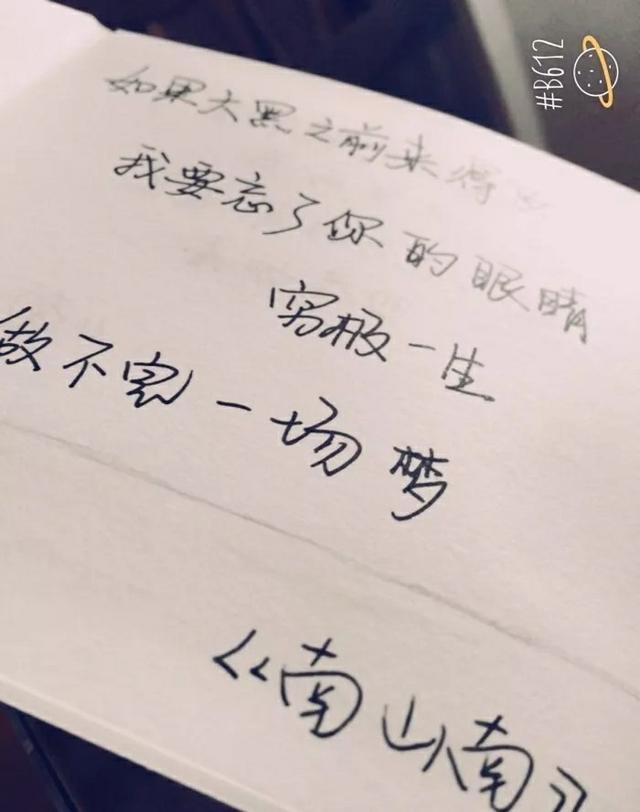 #B612
如果大黑之前来得
我要忘了你的眼睛
穷极一生
做不完一场梦
《南山南》